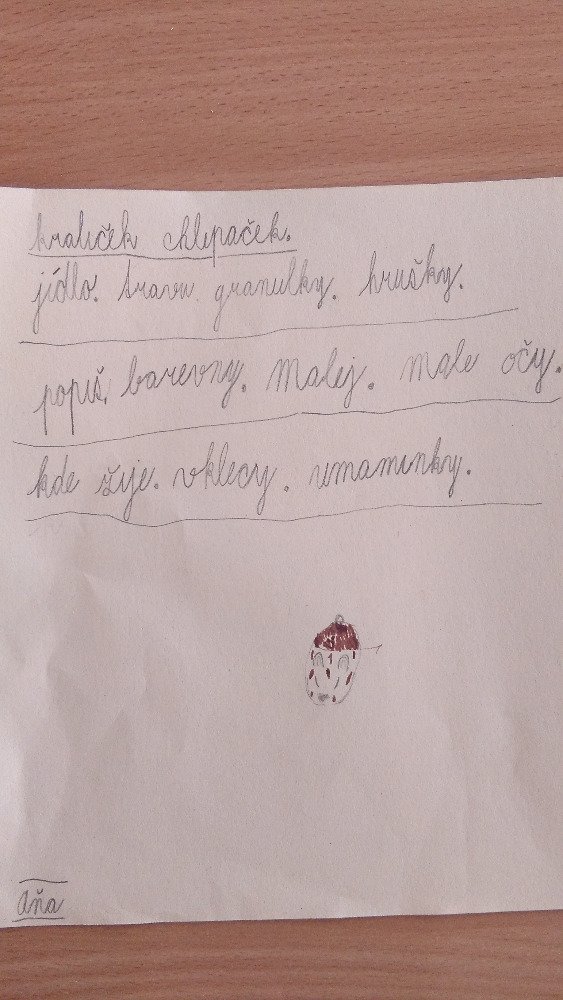 kraliček chlupaček.
jídlo. travu. granulky. hrušky.
popiš. barevny. malej. male očy.
kde žije. vklecy. umaminky.
Aňa